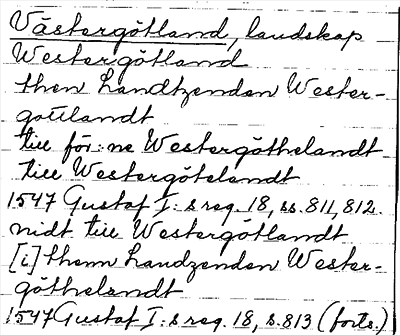 Västergötland, landskap
Westergötland
then Landtzenden Wester-
gottlandt
till för:ne Westergöthelandt
till Westergötelandt
1547 Gustaf I:s reg. 18, ss. 811, 812.
nidt till Westergötlandt
[i] them Landzenden Wester-
göthelandt
1547 Gustaf I:s reg. 18, s. 813 (forts.)